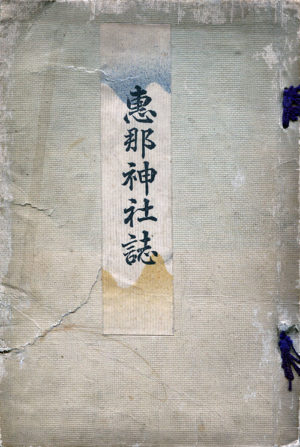 惠那神社誌